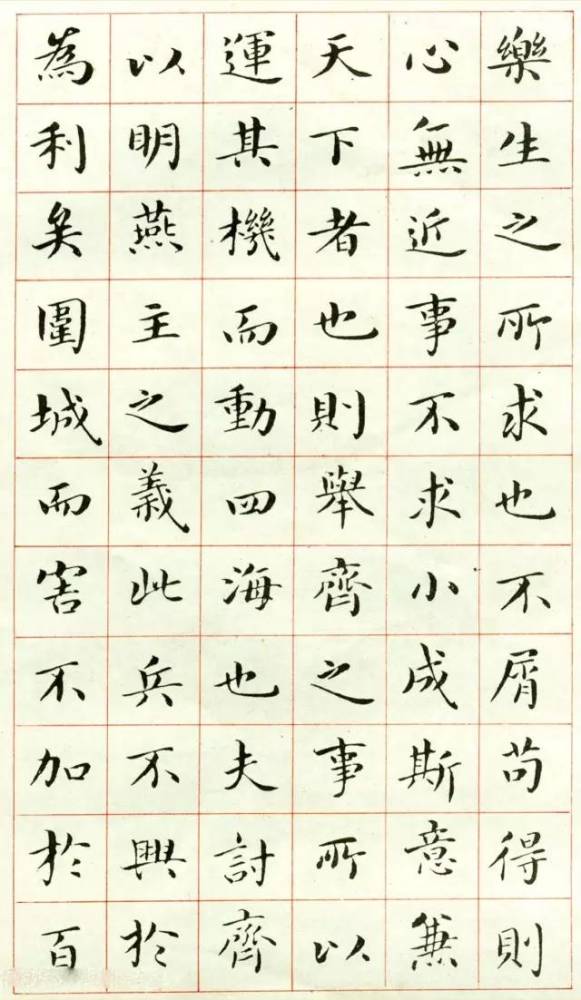 樂生之所求也不屑苟得則
心無近事不求小成斯意兼
天下者也則舉齊之事所以
運其機而動四海也夫討齊
以明燕主之義此兵不興於
為利矣圍城而害不加於百